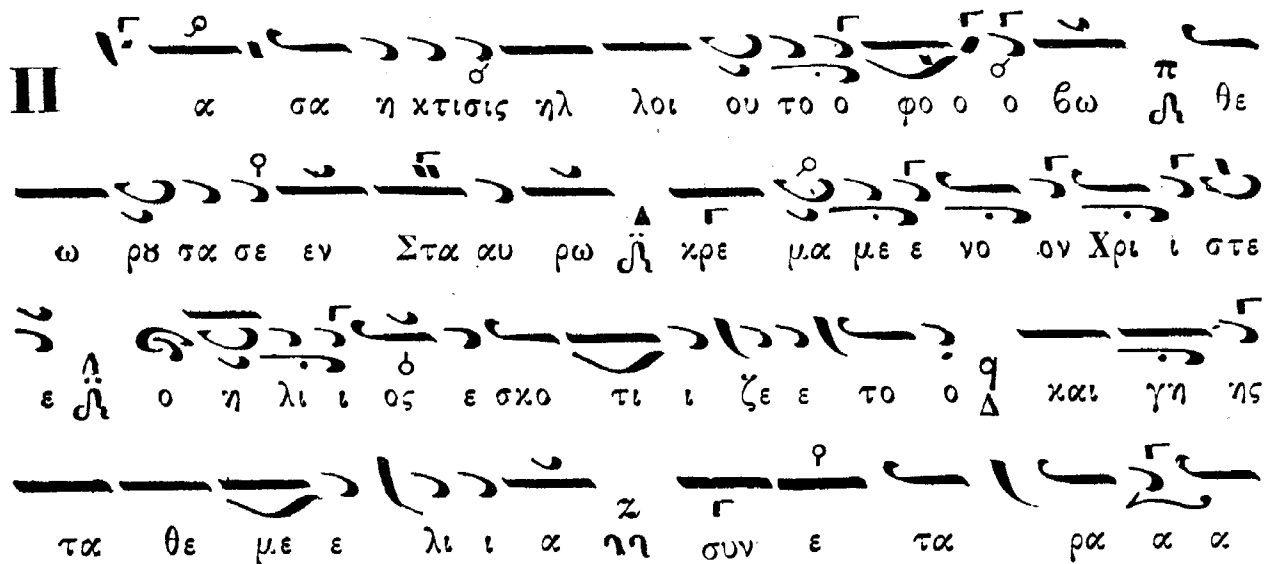 Π α σα η κτισις ηλ λοι ου το ο φο ο ο βω π θε
ω ρȣ σα σε εν Στα αυ ρω Δ κρε μα με ε νο ον Χρι ι στε
ε Λ ο η λι ι ος ε σκο τι ι ζε ε το ο q Δ και γη ης
τα θε με ε λι ι α Z συν ε τα ρα α α